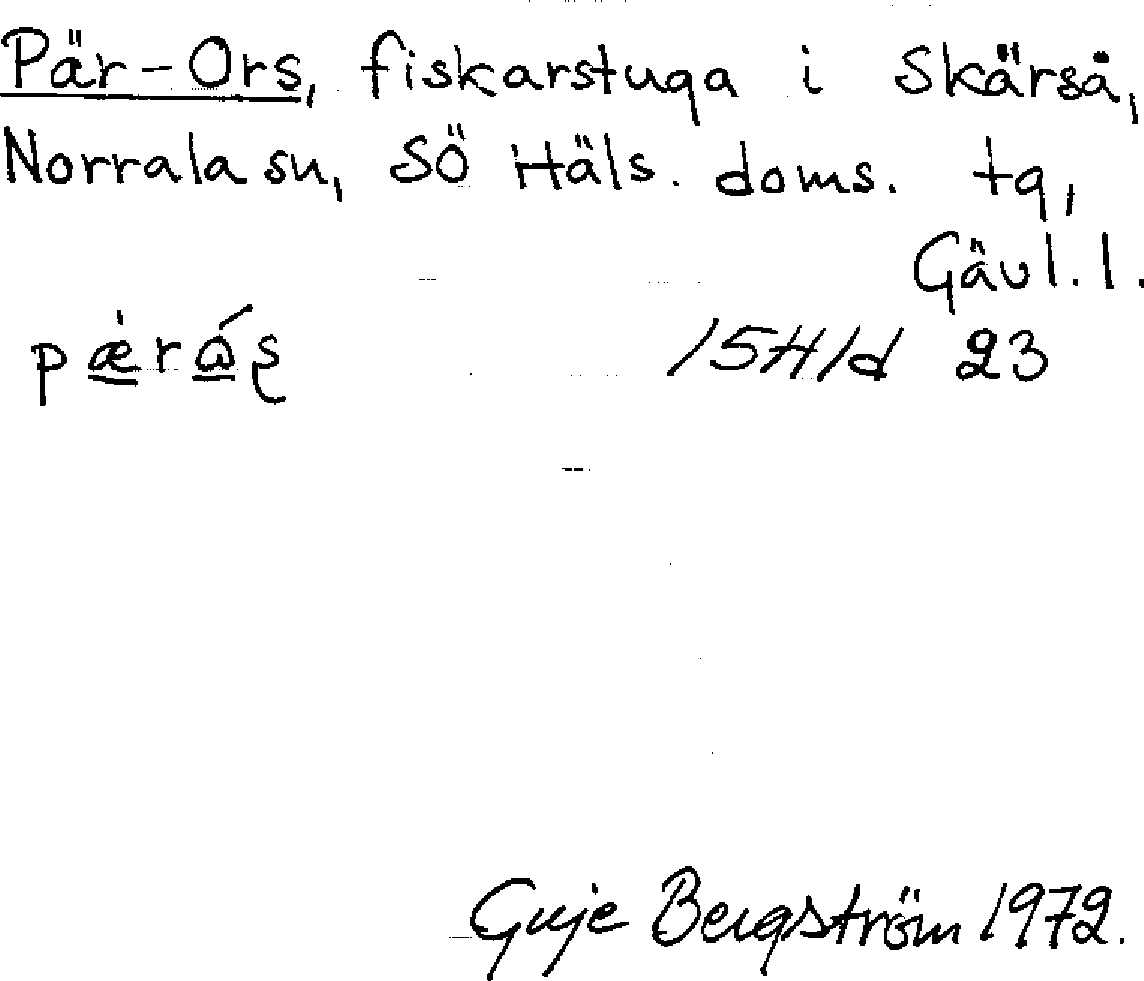 Pär-Ors, fiskarstuga i Skärså,
Norrala sn, SÖ Häls. doms. tg,
Gävl. l.
pæ̀rɷ́ʂ 15H1d 23
Guje Bergström 1972.